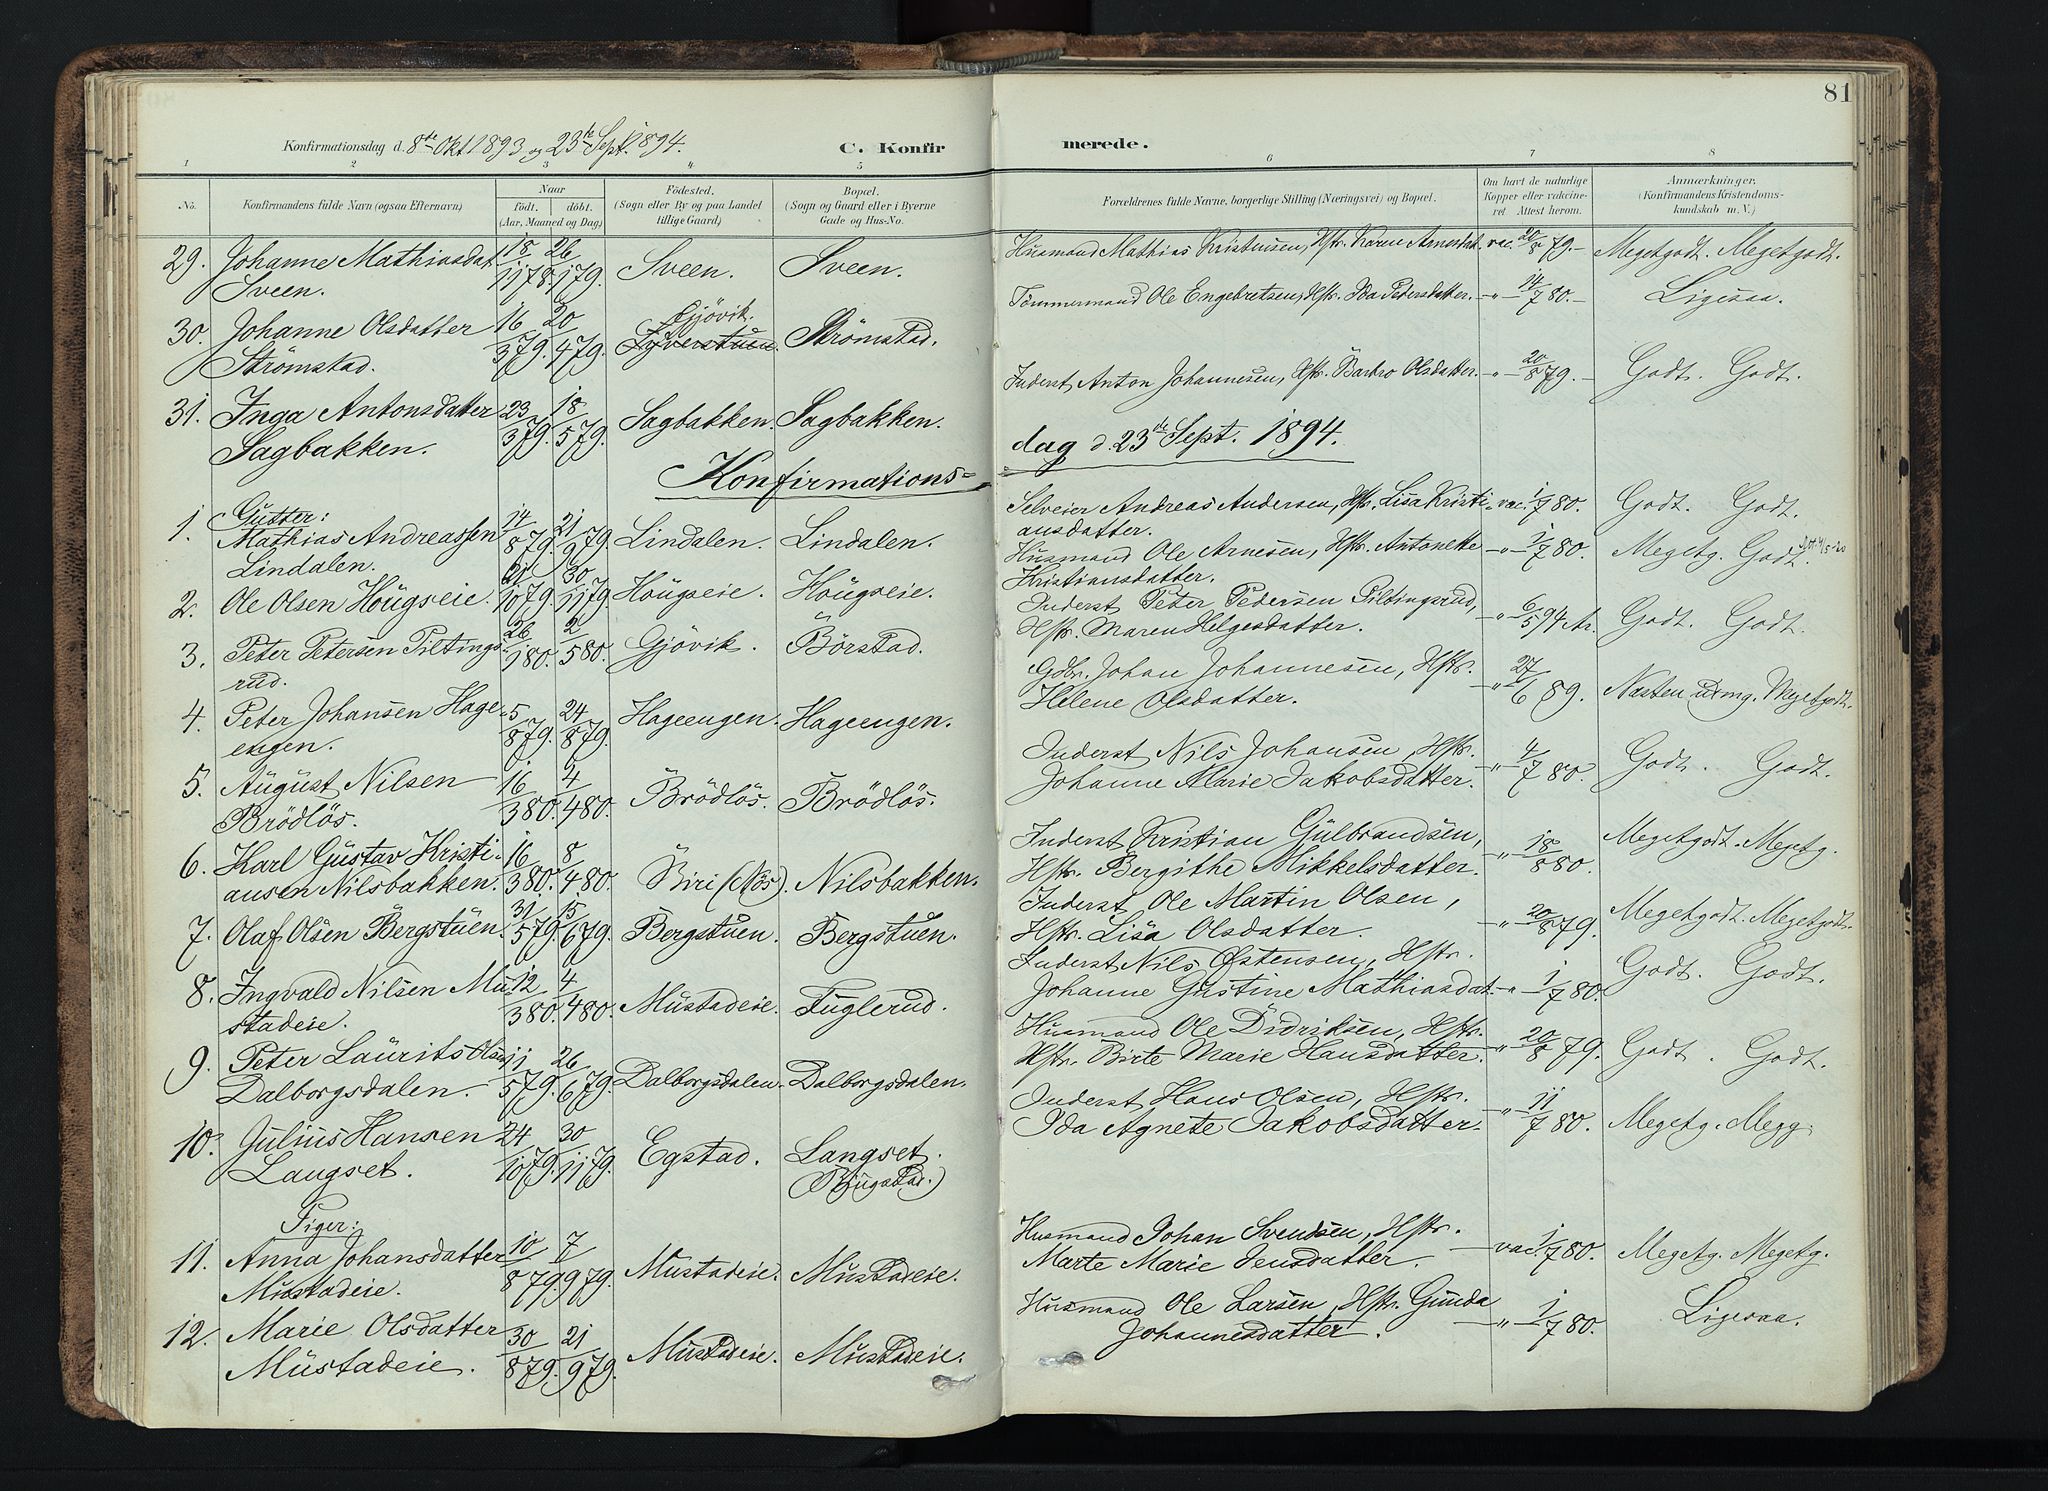 81
Konfirmationsdag d. 8de Okt 1893 og 23de Sept. 1894.
C. Konfir
merede.
1 2 3 4 5 6 7 8
No.
Konfirmandens fulde Navn (ogsaa Efternavn)
Naar
født. døbt.
(Aar, Maaned og Dag)
Födested.
(Sogn eller By og paa Landet
tillige Gaard)
Bopæl.
(Sogn og Gaard eller i Byerne
Gade og Hus-No.
Forældrenes fulde Navne, borgerlige Stilling (Næringsvei) og Bopæl.
Om havt de naturlige
Kopper eller vaccine-
ret Attest herom.
Anmærkninger.
(Konfirmandens Kristendoms-
kundskab m. V.)
29. Johanne Mathiasdat. 18/11 78. 26/1 79. Sveen. Sveen. Husmand Mathias Kristiansen, Hstr. Karen Arnesdat. vac. 20/8 79. Megetgodt. Megetgodt.
Sveen.
30. Johanne Olsdatter 16/3 79. 20/4 79. Gjövik. Strömstad. Tömmermand Ole Engebretsen, Hstr. Ida Petersdatter. " 14/7 80. Ligesaa.
Strömstad.
31. Inga Antonsdatter 23/3 79. 18/5 79. Sagbakken. Sagbakken. Inderst Anton Johannesen, Hstr. Barbro Olsdatter. " 20/8 79. Godt. Godt.
Sagbakken.
Konfirmations-
dag d. 23de Sept. 1894.
Gutter:
1. Mathias Andreassen 14/8 79. 21/9 79. Lindalen. Lindalen. Selveier Andreas Andersen, Hstr. Lisa Kristi- vac. 1/7 80. Godt. Godt.
Lindalen. ansdatter.
2. Ole Olsen Hougseie. 21/10 79. 30/11 79. Hougseie. Hougseie. Husmand Ole Arnesen, Hstr. Antonette " 1/7 80. Megetg. Godt.
Kristiansdatter.
3. Peter Petersen Piltings- 26/1 80. 2/5 80. Gjövik. Börstad. Inderst Peter Pedersen Piltingsrud, " 6/5 94 Godt. Godt.
rud. Hstr. Maren Helgesdatter.
4. Peter Johansen Hage- 5/8 79. 24/8 79. Hageengen. Hageengen. Gdbr. Johan Johannesen, Hstr. " 27/6 89. Næsten udmg. Megetgodt.
engen. Helene Olsdatter.
5. August Nilsen 16/3 80. 4/4 80. Brödlös. Brödlös. Inderst Nils Johansen, Hstr. " 4/7 80. Godt. Godt.
Brödlös. Johanne Marie Jakobsdatter.
6. Karl Gustav Kristi- 16/3 80. 8/4 80. Biri (Nös). Nilsbakken. Inderst Kristian Gulbrandsen, " 18/8 80. Megetgodt. Megetg.
ansen Nilsbakken. Hstr. Bergithe Mikkelsdatter.
7. Olaf Olsen Bergstuen. 31/5 79. 15/6 79. Bergstuen. Bergstuen. Inderst Ole Martin Olsen, " 20/8 79. Megetgodt. Megetgodt.
Hstr. Lisa Olsdatter.
8. Ingvald Nilsen Mu- 12/3 80. 4/4 80. Mustadeie. Fuglerud. Inderst Nils Östensen, Hstr. " 1/7 80. Godt. Godt.
stadeie. Johanne Gustine Mathiasdat.
9. Peter Laurits Olsen 11/5 79. 26/6 79. Dalborgsdalen. Dalborgsdalen. Husmand Ole Didriksen, Hstr. " 20/8 79. Godt. Godt.
Dalborgsdalen. Hstr. Birte Marie Hansdatter.
10. Julius Hansen 24/10 79. 30/11 79. Egstad. Langset. Inderst Hans Olsen, Hstr. " 11/7 80. Megetg. Megg
Langset. (Bjugstad.) Ida Agnete Jakobsdatter.
Piger:
11. Anna Johansdatter 10/8 79. 7/9 79. Mustadeie. Mustadeie. Husmand Johan Svendsen, Hstr. vac. 1/7 80. Megetg. Megetg.
Mustadeie. Marte Marie Jensdatter.
12. Marie Olsdatter 30/8 79. 21/9 79. Mustadeie. Mustadeie. Husmand Ole Larsen, Hstr. Gunda " 1/7 80. Ligesaa.
Mustadeie. Johannesdatter.